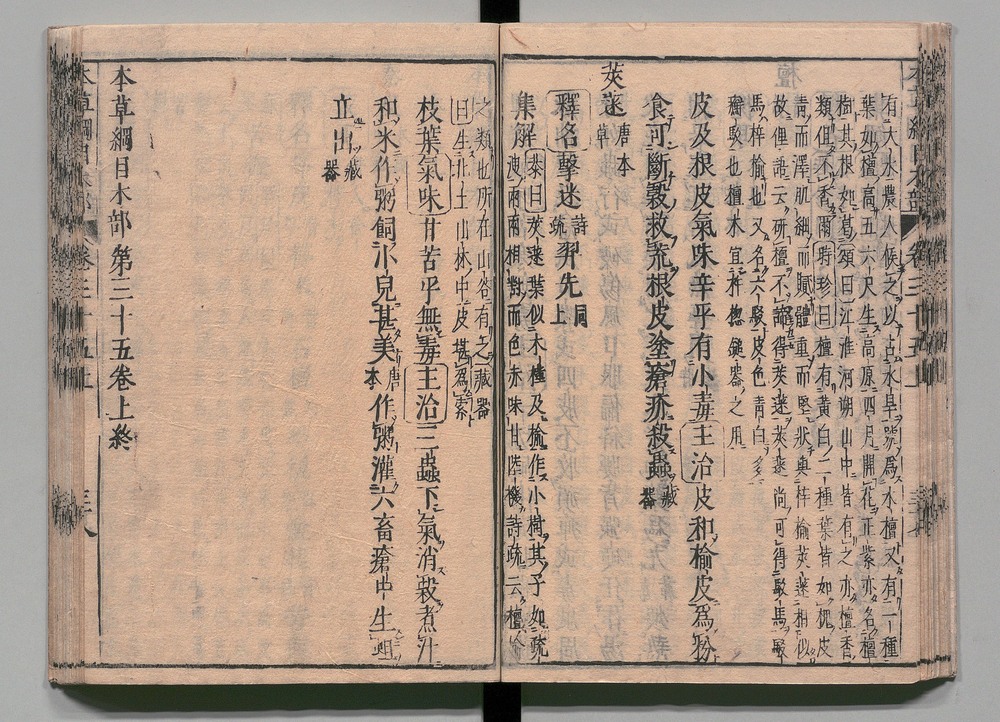 有大水農人候之以占水旱號爲水檀又有一種
葉如檀高五六尺生高原四月開花正紫亦名檀
樹其根如葛頌曰江淮河朔山中皆有之亦檀香
類但不香爾時珍曰檀有黃白二種葉皆如槐皮
青而澤肌細而膩體重而堅狀與梓榆莢蒾相似
故俚語云斫檀不諦得莢蒾莢蒾尚可得駁馬駁
馬梓榆也又名六駁皮色青白多
癬駁也檀木宜杵楤鎚器之用
皮及根皮氣味辛平有小毒主治皮和榆皮爲粉
食可斷穀救荒根皮塗瘡疥殺蟲藏器
莢蒾唐本草
釋名擊迷詩疏羿先同上
集解恭曰莢蒾葉似木槿及榆作小樹其子如䟽
溲兩兩相對而色赤味甘陸機詩疏云檀榆
之類也所在山谷有之藏器
曰生北土山林中皮堪爲索
枝葉氣味甘苦平無毒主治三蟲下氣消穀煮汁
和米作粥飼小兒甚美唐本作粥灌六畜瘡中生蛆
立出藏器
本草綱目木部第三十五卷上終